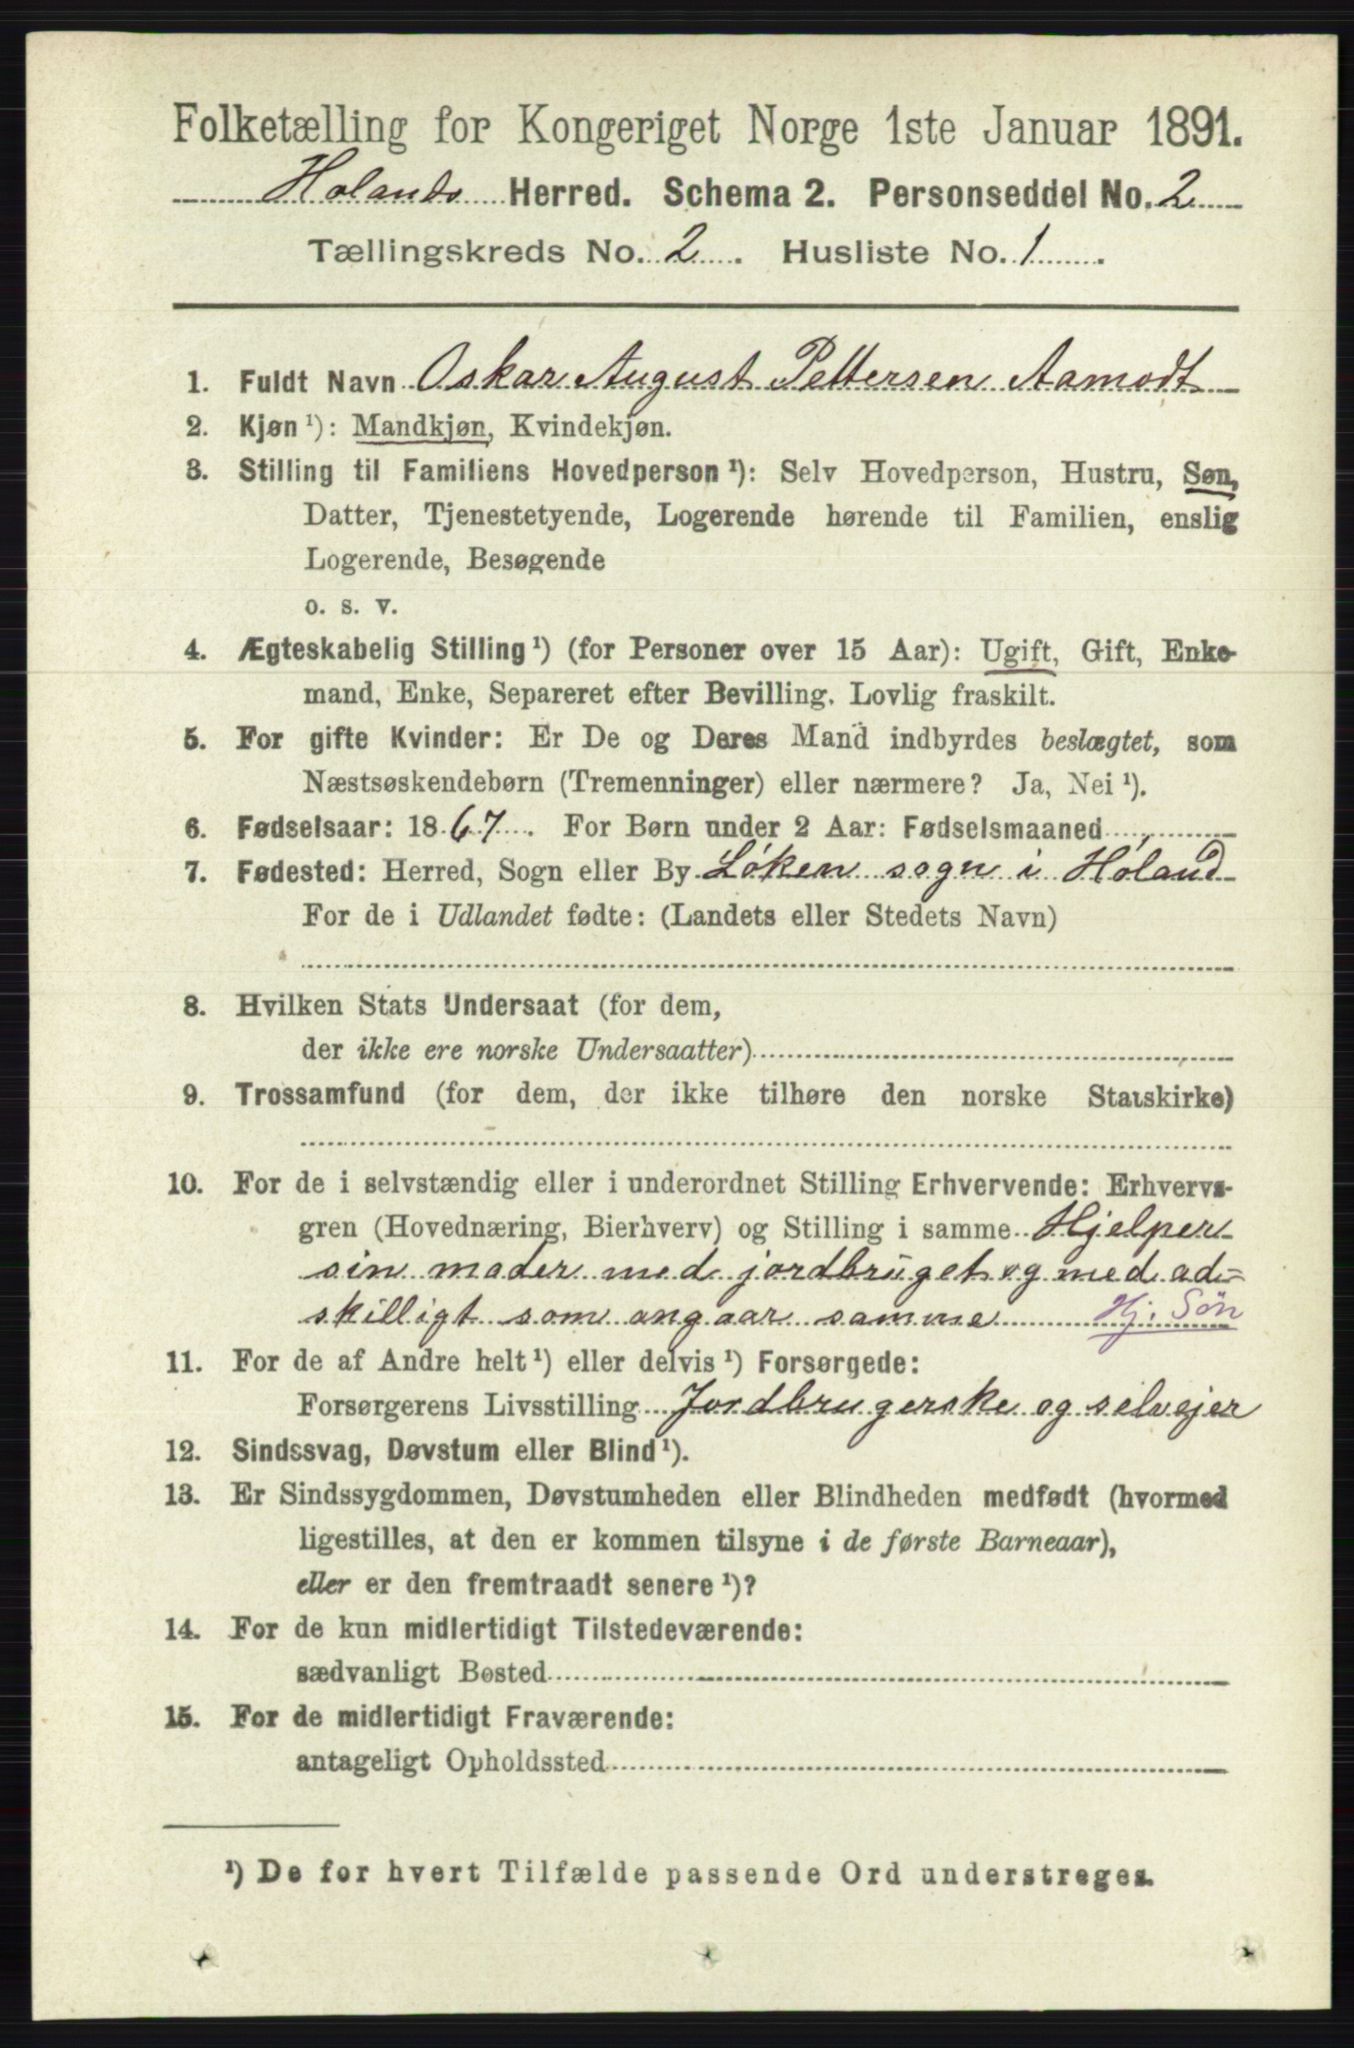 Folketælling for Kongeriget Norge 1ste Januar 1891.
Holands Herred. Schema 2. Personseddel No. 2
Tællingskreds No. 2. Husliste No. 1.
1. Fuldt Navn Oskar August Pettersen Aamodt
2. Kjøn ¹): Mandkjøn, Kvindekjøn.
3. Stilling til Familiens Hovedperson ¹): Selv Hovedperson, Hustru, Søn,
Datter, Tjenestetyende, Logerende hørende til Familien, enslig
Logerende, Besøgende
o. s. v.
4. Ægteskabelig Stilling ¹) (for Personer over 15 Aar): Ugift, Gift, Enke-
mand, Enke, Separeret efter Bevilling. Lovlig fraskilt.
5. For gifte Kvinder: Er De og Deres Mand indbyrdes beslægtet, som
Næstsøskendebørn (Tremenninger) eller nærmere? Ja, Nei ¹).
6. Fødselsaar: 1867. For Børn under 2 Aar: Fødselsmaaned
7. Fødested: Herred, Sogn eller By Løken sogn i Høland
For de i Udlandet fødte: (Landets eller Stedets Navn)
8. Hvilken Stats Undersaat (for dem,
der ikke ere norske Undersaatter)
9. Trossamfund (for dem, der ikke tilhøre den norske Statskirke)
10. For de i selvstændig eller i underordnet Stilling Erhvervende: Erhvervs-
gren (Hovednæring, Bierhverv) og Stilling i samme Hjelper
sin moder med jordbruget og med ad=
skilligt som angaar samme Hj. Søn
11. For de af Andre helt ¹) eller delvis ¹) Forsørgede:
Forsørgerens Livsstilling Jordbrugerske og selvejer
12. Sindssvag, Døvstum eller Blind ¹).
13. Er Sindssygdommen, Døvstumheden eller Blindheden medfødt (hvormed
ligestilles, at den er kommen tilsyne i de første Barneaar),
eller er den fremtraadt senere ¹)?
14. For de kun midlertidigt Tilstedeværende:
sædvanligt Bosted
15. For de midlertidigt Fraværende:
antageligt Opholdssted
¹) De for hvert Tilfælde passende Ord understreges.